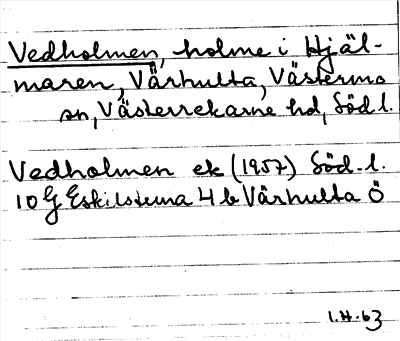 Vedholmen, holme i Hjäl-
maren, Vårhulta, Västermo
sn, Västerrekarne hd, Söd l.
Vedholmen ek (1957) Söd. l.
10 G Eskilstuna 4 b Vårhulta Ö
I.H.63